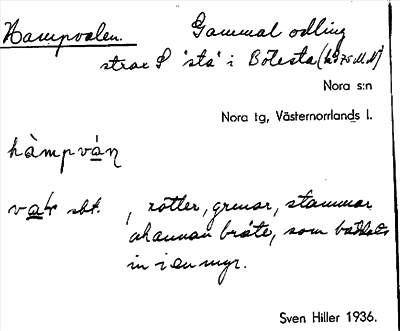 Hampvalen. Gammal odling
strax S 'sta' i Bölesta (
Nora s:n
Nora tg, Västernorrlands l.
hàmpván
vak sbt. , rötter, grenar, stammar
o annan bråte, som bäddats
in i en myr.
Sven Hiller 1936.